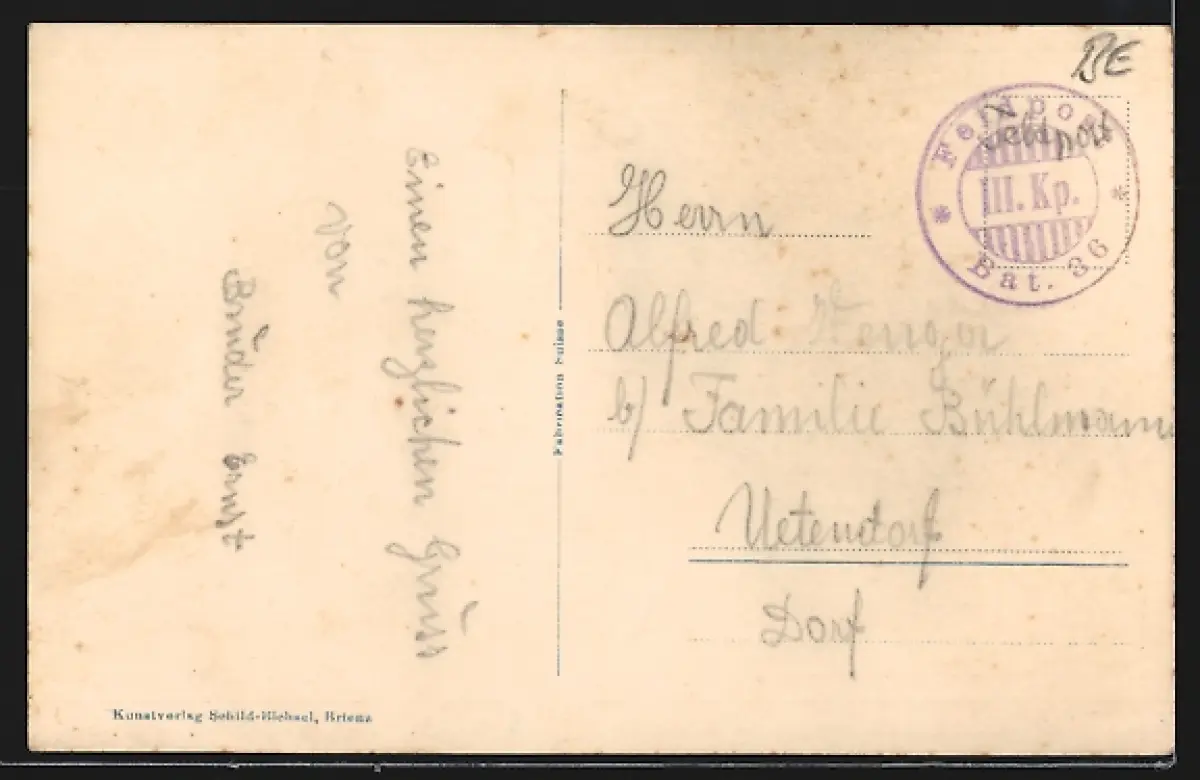 Einen herzlichen Gruss
von
Bruder Ernst
Kunstverlag Schild-Bichsel, Brienz
Fabrication Suisse
BE
Feldpost
Feldpost
III. Kp.
Bat. 36
Herrn
Alfred Wenger
b/ Familie Bühlmann
Uetendorf
Dorf